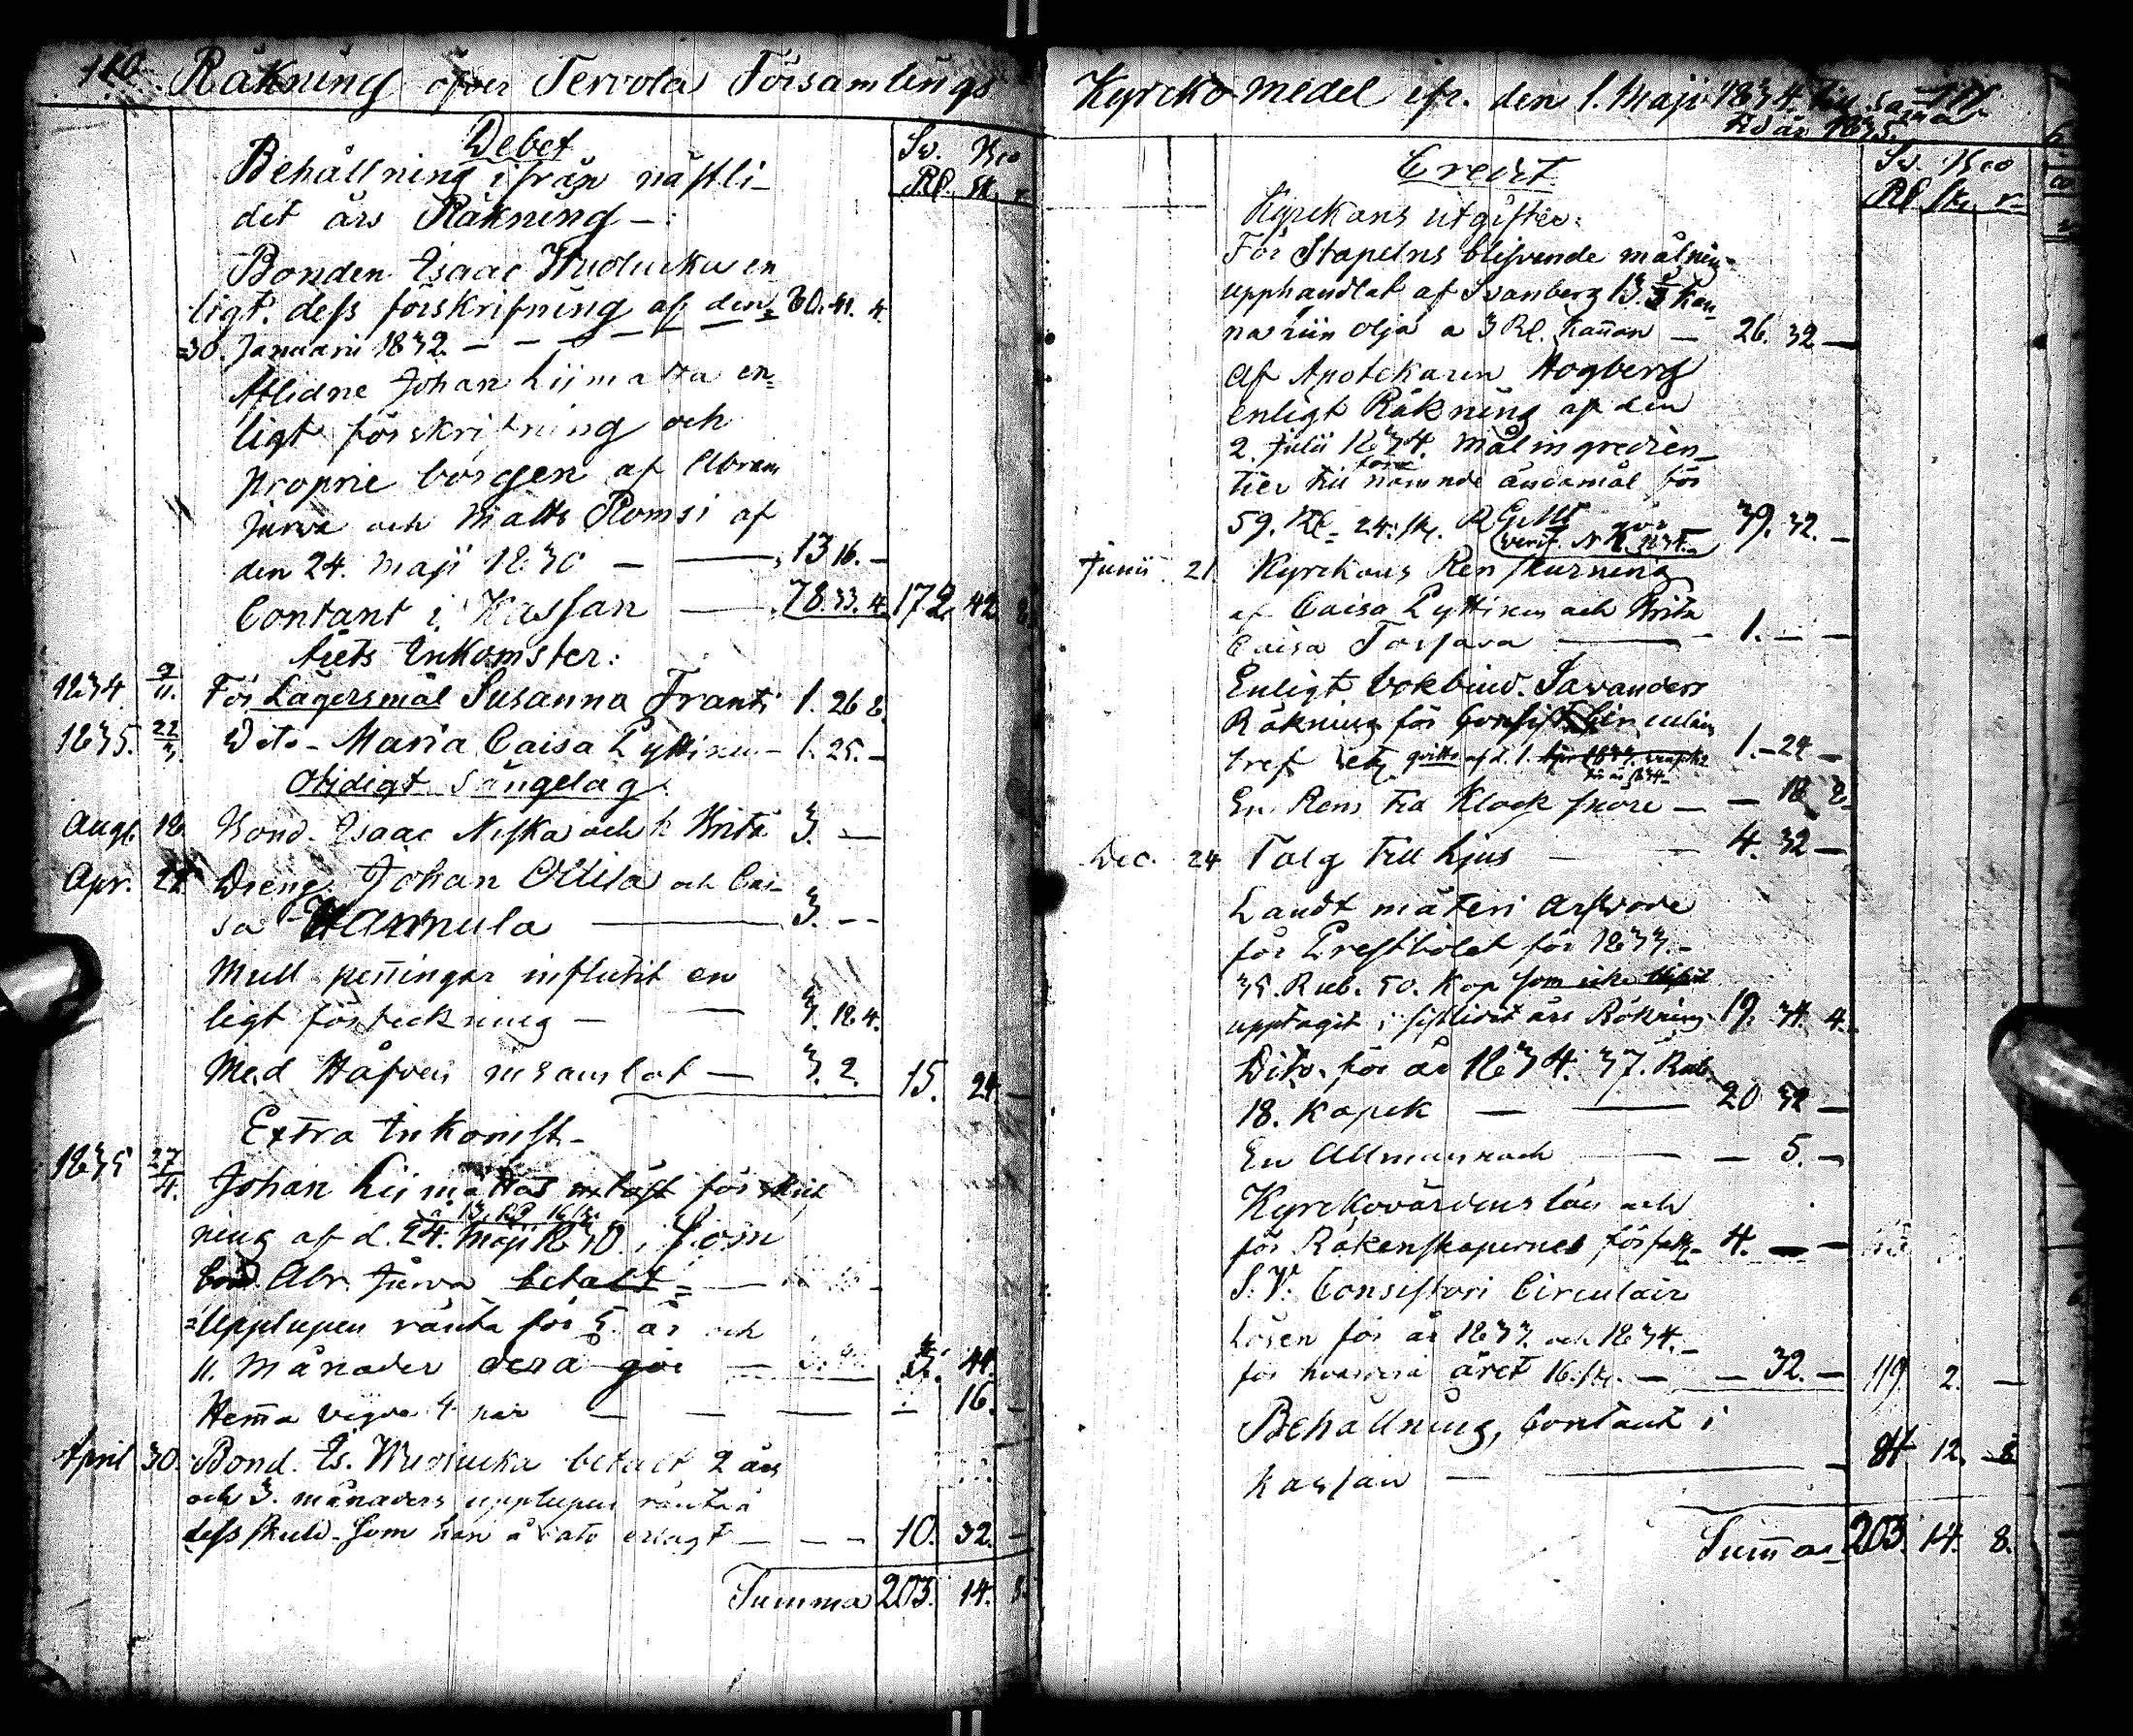 110. Räkning öfver Tervola Församlings
Debet
Sv. Bco
Rd. sk. r
Behållning ifrån nästli-
det års Räkning -:
Bonden Isaac Wuolucka en
ligt. dess förskrifning af den = 80. 41. 4.
=30. Januarii 1832. - - - - -
Aflidne Johan Liimatta en=
ligt förskrifning och
proprie borgen af Abram
Jurva och Matts Romsi af
den 24. Maji 1830 - — 13 16. -
Contant i Kassan — 78. 33. 4. 172. 42. 8.
Årets Inkomster:
1834. 9/11. För Lägersmål Susanna Franti 1. 26 8.
1835. 22/3. Dito - Maria Caisa Pyttinen - 1. 25. -
Otidigt sängelag.
Aug. 18 Bond. Isaac Niska och h Brita 3. —
Apr. 22 Dreng. Johan Ollila och Cai-
sa Hannula — 3. - -
Mull penningar influtit en
ligt förteckning - — 3. 18. 4.
Med Håfven insamlat — 3. 2. 15. 24. -
Extra Inkomst -
1835 27/4. Johan Liimattas inlöst förskrif
å 13. Rd 16 sk.
ning af d. 24. Maji 1830. i som
Bond. Abr. Jurva betalt = —
=Upplupen ränta för 5. år och
11. Månader dera gör — 3. 44.
Hemma vigde 4 par — — — - 16. -
April 30. Bond. Is. Wuolucka betalt 2 års
och 3. månaders upplupen ränta å
dess skuld - som han å dato erlagt - - - 10. 32. -
Summa 203. 14. 8.
Kyrcko medel ifr. den 1. Maji 1834. till samma 111
tid år 1835.
Credit
Sv. Bco
Rd sk. r
Kyrckans utgifter:
För Stapelns blifvande målning=
upphandlat af Svanberg 13. 1/3 kan=
na riin olja a 3 Rd. kannan — 26. 32 —
Af Apotekaren Hogberg
enligt Räkning af den
2. Julii 1834. mål ingredien_
tier till nämnde ändamål för
59. Rd = 24. sk. R Gld gör — 39. 32. -
verif. N 1. 1834.
Junii 21 Kyrckans Ren skurning
af Caisa Pyttinen och Brita
Caisa Torfara — 1. — —
Enligt bokbind. Savanders
Räkning för Consist. Circulär
1. - 24 -
En Rens till Klock snöre — — 18 8.
Dec. 24 Talg till Ljus — - 4. 32 —
Landt mäteri arfvode
för Prestbolet för 1833. -
35. Rub. 50. Kop som icke blifvit
upptagit i sistlidet års Räkning 19. 34. 4.
Dito. för år 1834. 37. Rub.
18. Kopek — — 20 32 —
En Allmannach — — 5. -
Kyrckovärdens lön och
för Räkenskapernes författ. 4. — —
S. V. Consistori Circulair
Lösen för år 1833. och 1834. -
för hvardera året 16. sk. — — 32. - 119. 2. —
Behållning, Contant i
Kassan — — 84 12. 8
Summa 203. 14. 8.